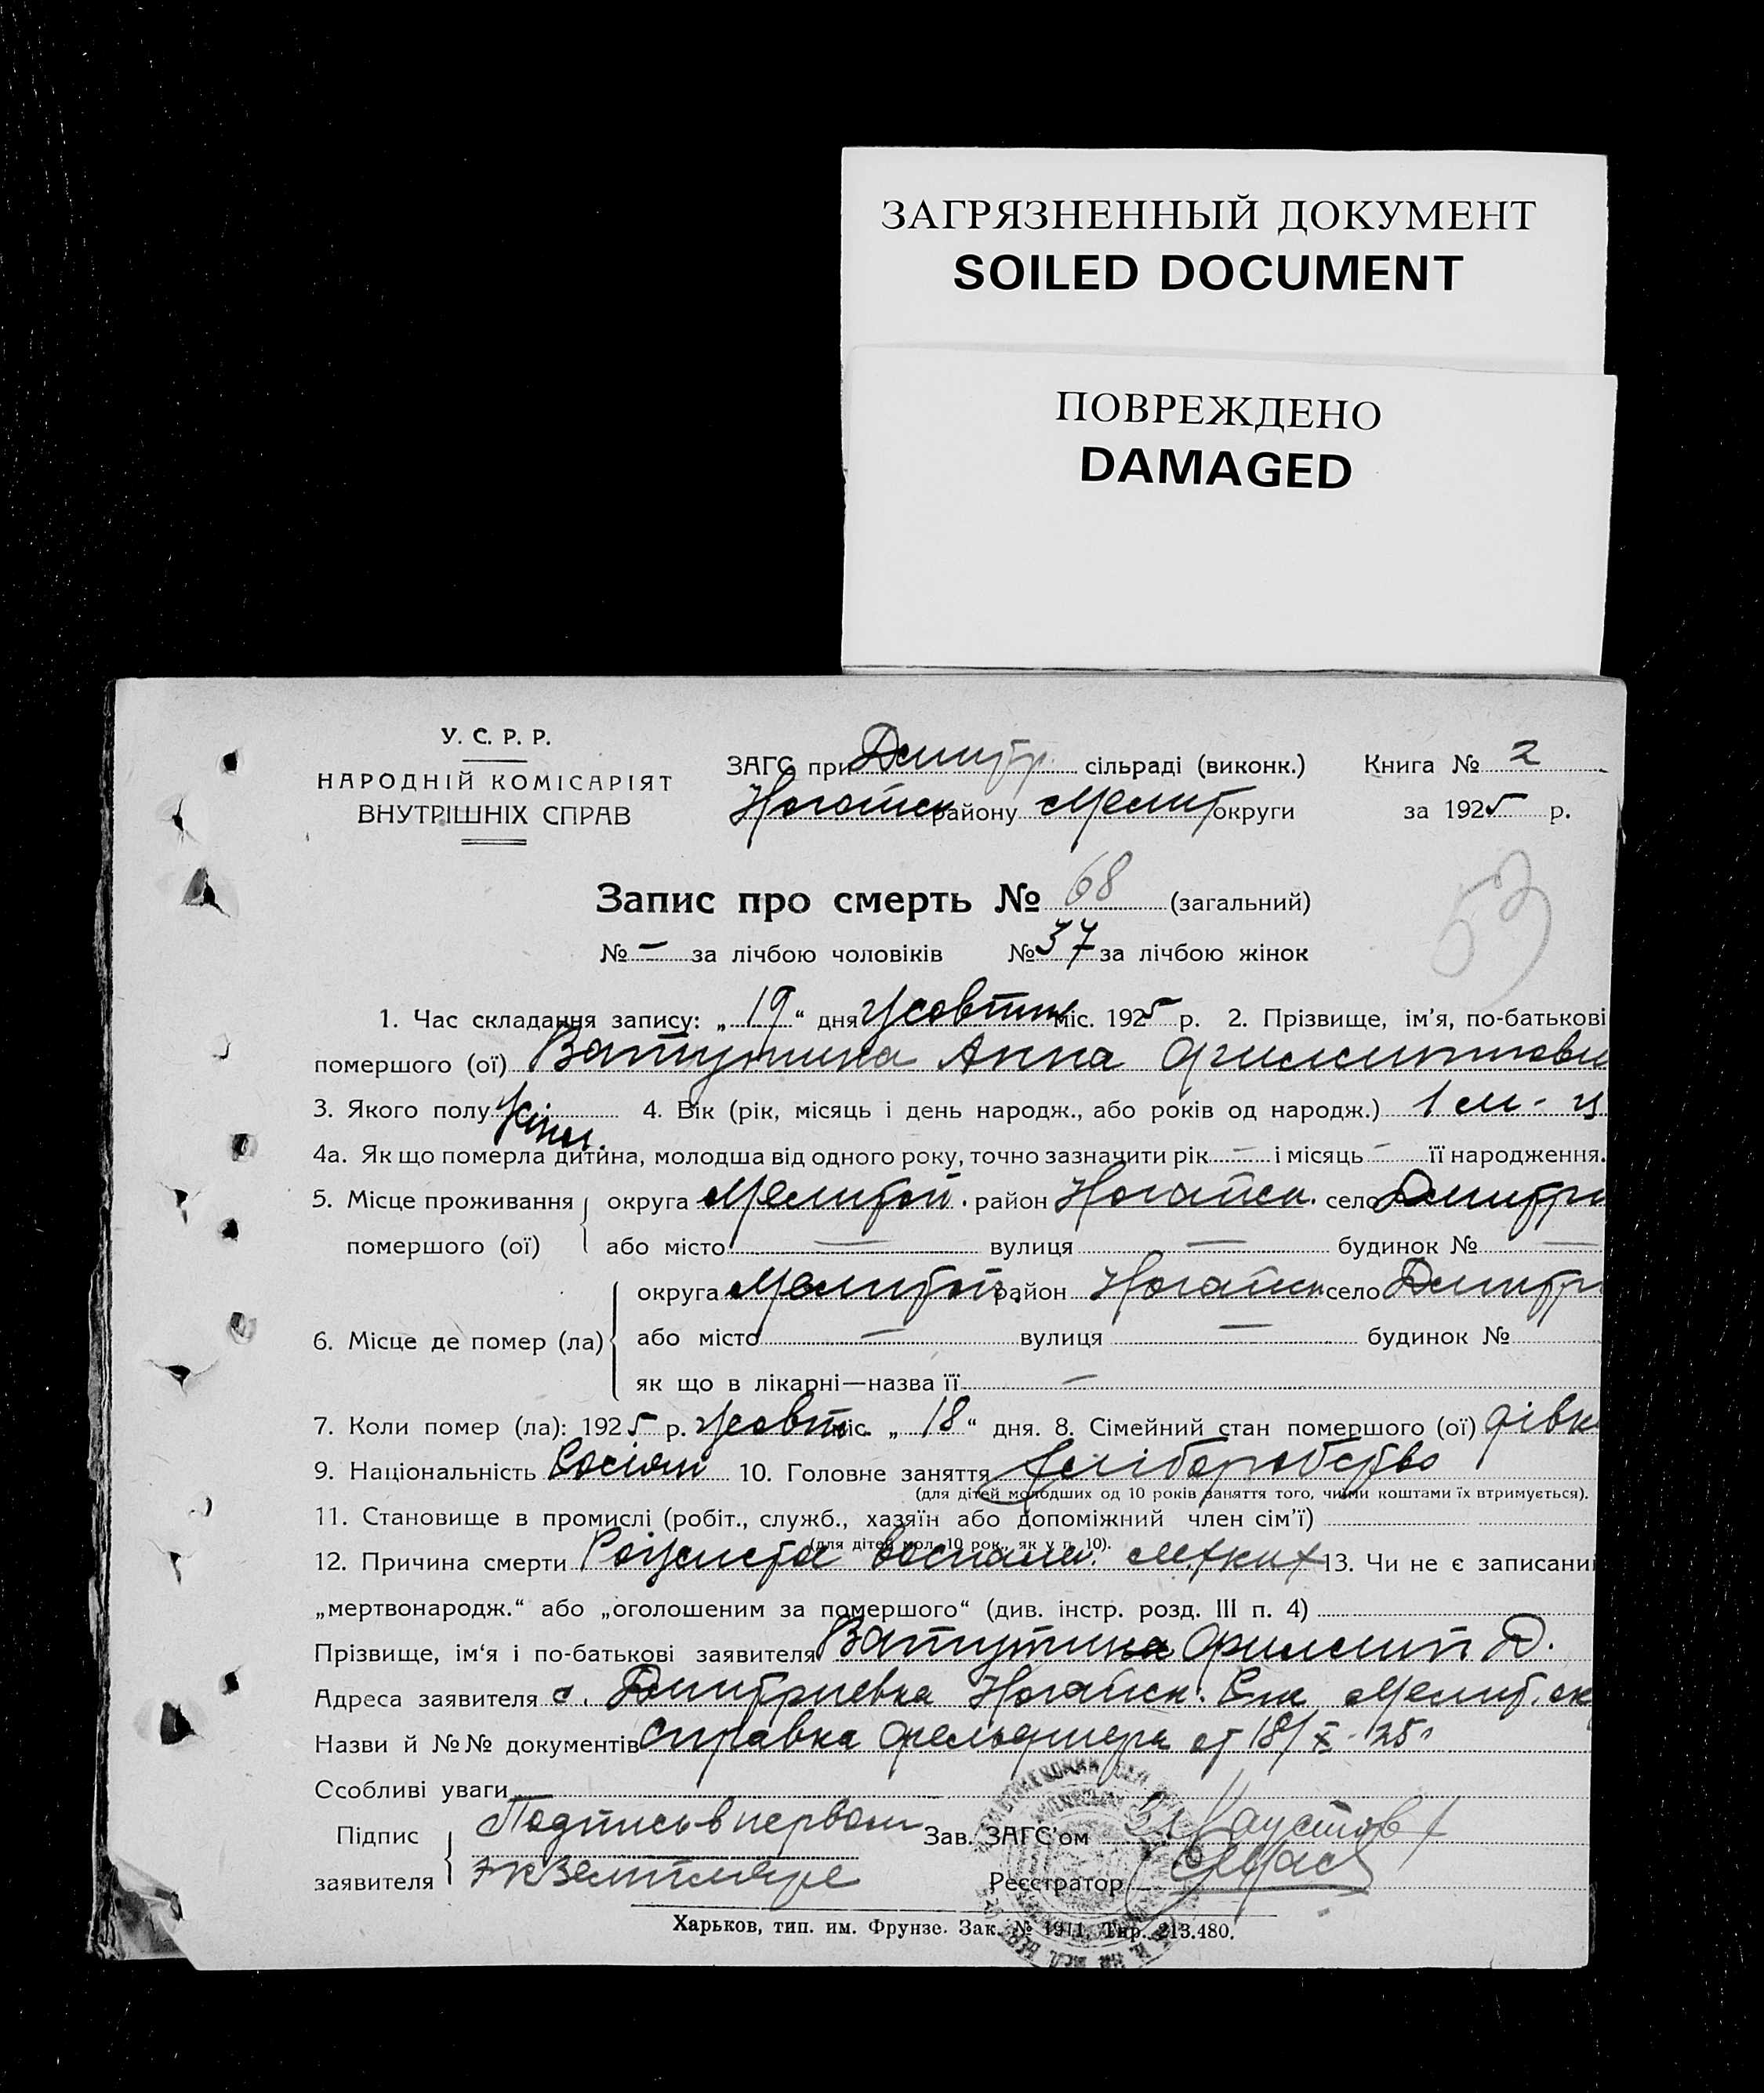 ЗАГРЯЗНЕННЫЙ ДОКУМЕНТ
SOILED DOCUMENT
ПОВРЕЖДЕНО
DAMAGED
У. С. Р. Р.
НАРОДНІЙ КОМІСАРІЯТ
ВНУТРІШНІХ СПРАВ
ЗАГС при Дмитр. сільраді (виконк.) Книга № 2
Ногайск району Мелит округи за 1925 р.
Запис про смерть № 68 (загальний)
53
№ — за лічбою чоловіків № 37 за лічбою жінок
1. Час складання запису: „19“ дня жовтня міс. 1925 р. 2. Прізвище, ім'я, по-батькові
помершого (ої) Ватутина Анна Филиппови
3. Якого полу жіноч. 4. Вік (рік, місяць і день народж., або років од народж.) 1 м-ц
4а. Як що померла дитина, молодша від одного року, точно зазначити рік — і місяць — її народження.
5. Місце проживання округа Мелитоп. район Ногайск. село Дмитри
помершого (ої) або місто — вулиця — будинок № —
округа Мелитоп. район Ногайск село Дмитри
6. Місце де помер (ла) або місто — вулиця — будинок №
як що в лікарні—назва її —
7. Коли помер (ла): 1925 р. жовт. міс. „18“ дня. 8. Сімейний стан помершого (ої) дівк
9. Національність Росіян 10. Головне заняття Хліборобство
(для дітей молодших од 10 років заняття того, чиїми коштами їх втримується).
11. Становище в промислі (робіт., служб., хазяїн або допоміжний член сім'ї)
(для дітей мол. 10 рок., як у п. 10).
12. Причина смерти воспален. 13. Чи не є записаний
„мертвонародж.“ або „оголошеним за помершого“ (див. інстр. розд. III п. 4)
Прізвище, ім'я і по-батькові заявителя Ватутина Филипп Д.
Адреса заявителя с. Дмитриевка Ногайск. Мелит. ок
Назви й №№ документів справка фельдшера от 18/X-25г
Ссобливі уваги
Підпис Подпись в первом Зав. ЗАГС'ом Хаустов
заявителя экземпляре Реєстратор
Харьков, тип. им. Фрунзе. Зак. № 1911. Тир. 213.480.